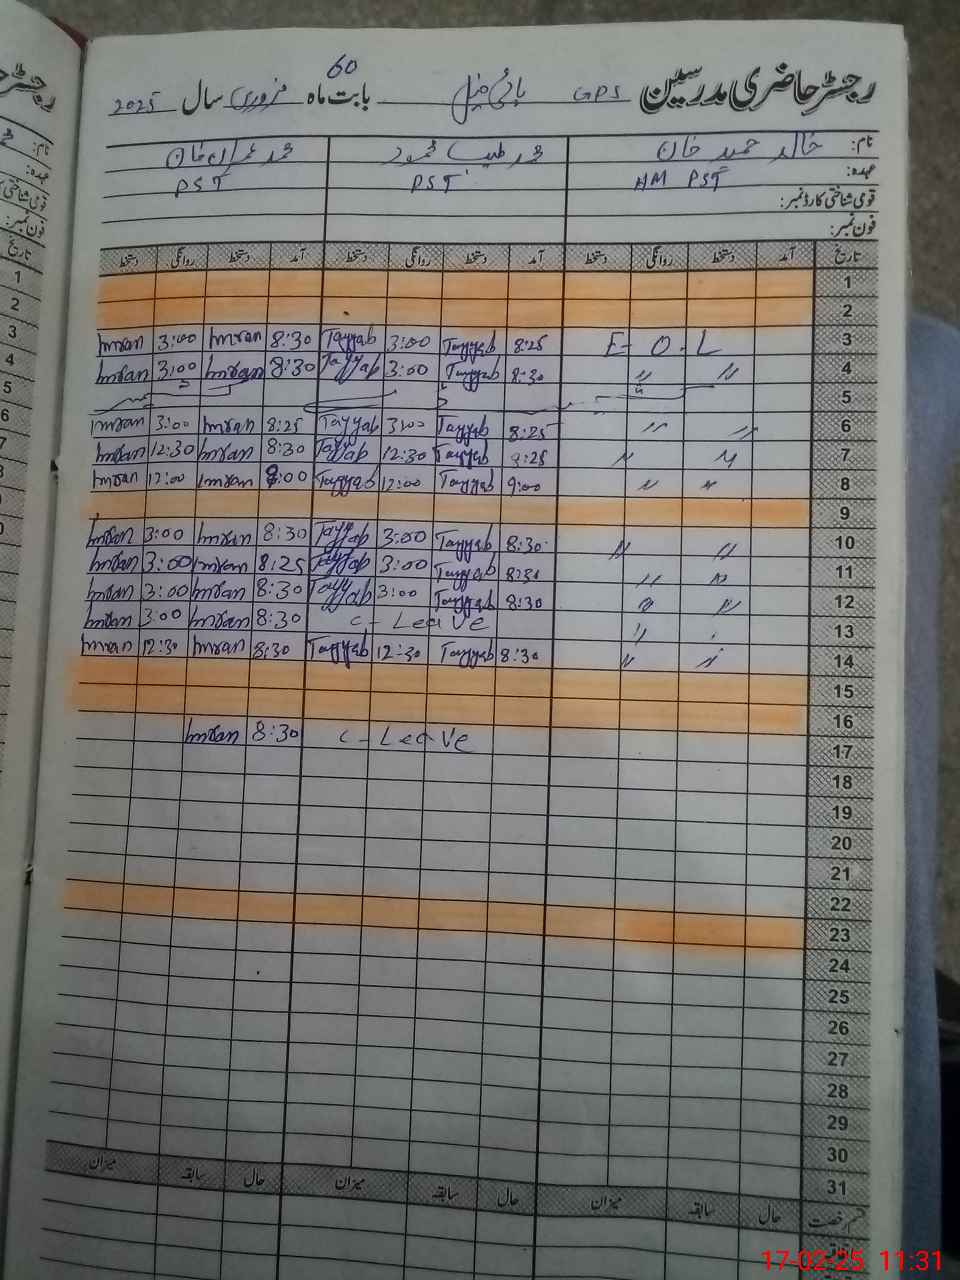 60
رجسٹر حاضری مدرسین GPS بابت ماہ فروری سال 2025
نام: خالد حمید خان محمد طیب محمود محمد عمران خان
عہدہ: HM PST PST PST
قومی شناختی کارڈ نمبر:
فون نمبر:
تاریخ آمد دستخط روانگی دستخط آمد دستخط روانگی دستخط آمد دستخط روانگی دستخط
1
2
Imran 3:00 Imran 8:30 Tayyab 3:00 Tayyab 8:25 E-O-L 3
Imran 3:00 Imran 8:30 Tayyab 3:00 Tayyab 8:30 〃 〃 4
5
Imran 3:00 Imran 8:25 Tayyab 3:00 Tayyab 8:25 〃 〃 6
Imran 12:30 Imran 8:30 Tayyab 12:30 Tayyab 8:25 〃 〃 7
Imran 12:00 Imran 9:00 Tayyab 12:00 Tayyab 9:00 〃 〃 8
9
Imran 3:00 Imran 8:30 Tayyab 3:00 Tayyab 8:30 〃 〃 10
Imran 3:00 Imran 8:25 Tayyab 3:00 Tayyab 8:30 〃 〃 11
Imran 3:00 Imran 8:30 Tayyab 3:00 Tayyab 8:30 〃 〃 12
Imran 3:00 Imran 8:30 C-Leave 〃 〃 13
Imran 12:30 Imran 8:30 Tayyab 12:30 Tayyab 8:30 〃 〃 14
15
16
Imran 8:30 C-Leave 17
18
19
20
21
22
23
24
25
26
27
28
29
30
31
قسم رخصت حال سابقہ میزان حال سابقہ میزان حال سابقہ میزان
17-02-25 11:31